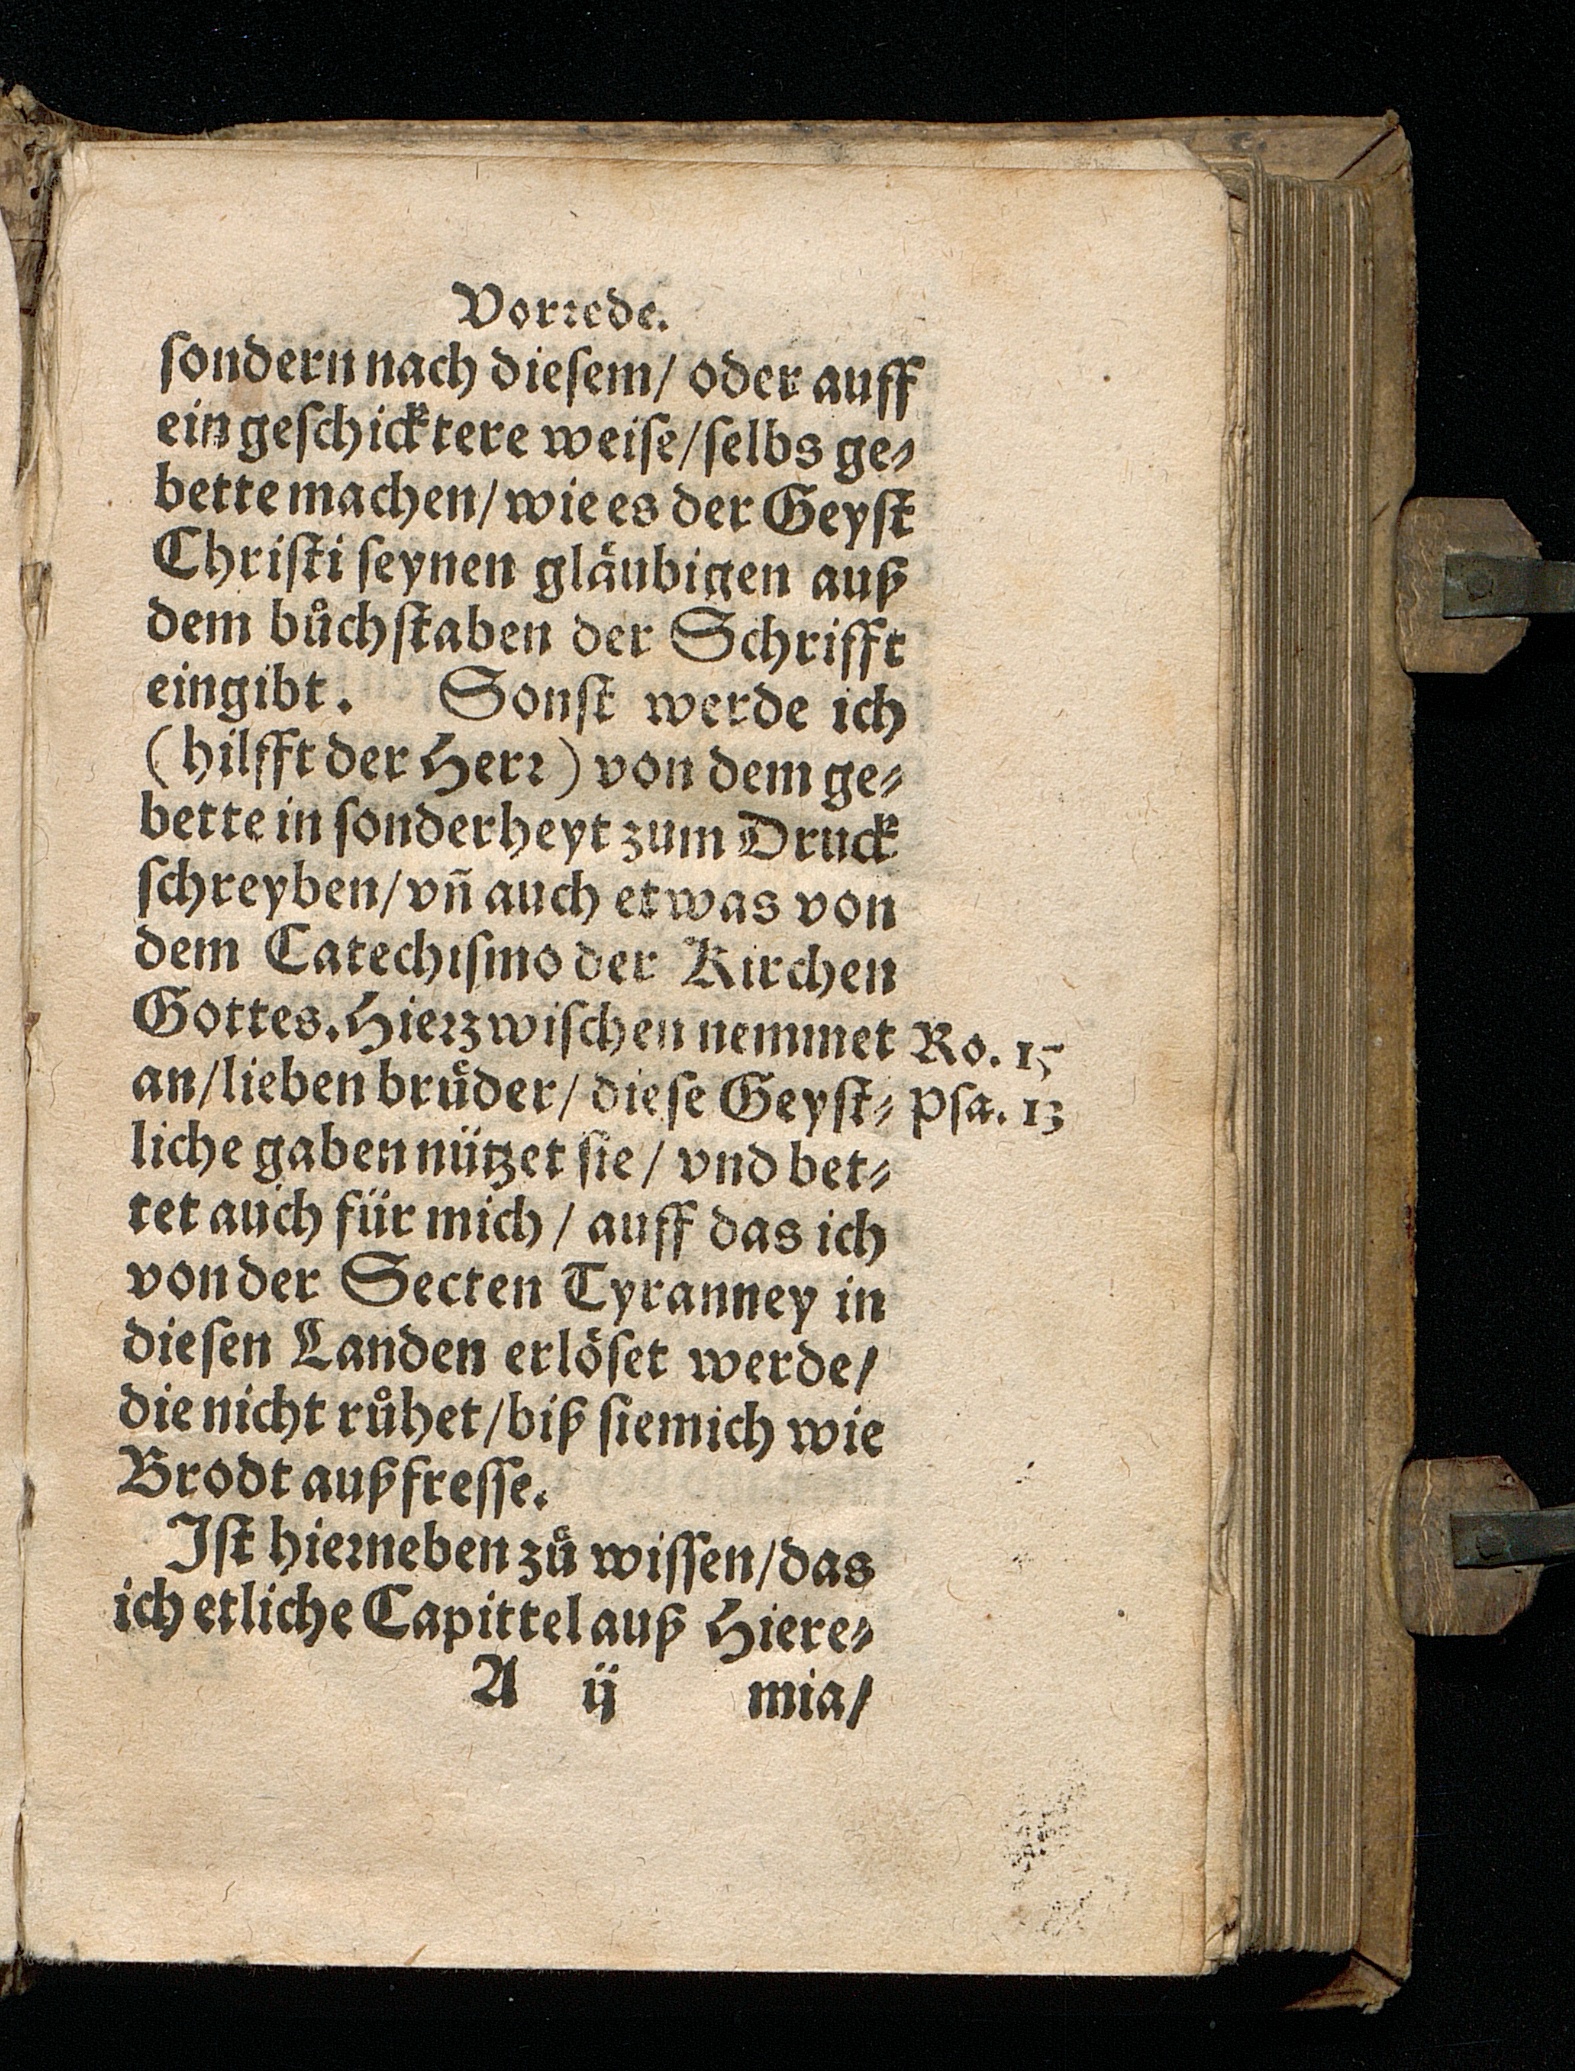 Vorꝛede.
ſondern nach dieſem/ oder auff
ein geſchicktere weiſe/ſelbs ge⸗
bette machen/wie es der Geyſt
Chriſti ſeynen glaͤubigen auß
dem bůchſtaben der Schrifft
eingibt. Sonſt werde ich
(hilfft der Herꝛ) von dem ge⸗
bette in ſonderheyt zum Druck
ſchreyben/vñ auch etwas von
dem Catechiſmo der Kirchen
Gottes. Hieꝛzwiſchen nemmet Ro. 15
an/lieben bruͤder/ dieſe Geyſt⸗ Pſa. 13
liche gaben nützet ſie/ vnd bet⸗
tet auch für mich/ auff das ich
von der Secten Tyranney in
dieſen Landen erloͤſet werde/
die nicht růhet/biß ſie mich wie
Brodt außfreſſe.
Iſt hieꝛneben zů wiſſen/das
ich etliche Capittel auß Hiere⸗
A ij mia/